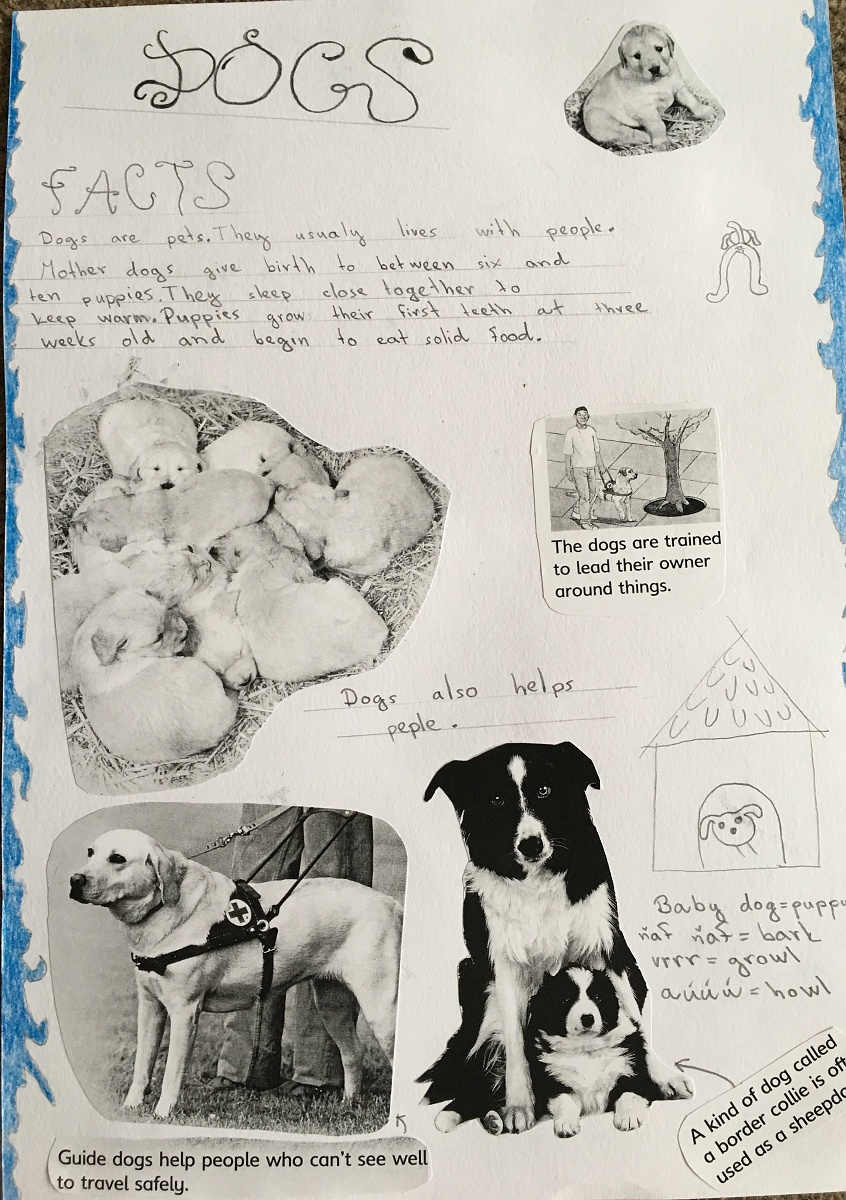 DOGS
FACTS
Dogs are pets. They usualy lives with people.
Mother dogs give birth to between six and
ten puppies. They sleep close together to
keep warm. Puppies grow their first teeth at three
weeks old and begin to eat solid food.
The dogs are trained
to lead their owner
around things.
Dogs also helps
peple.
Baby dog = puppy
ňaf ňaf = bark
vrrr = growl
aúúú = howl
A kind of dog called
a border collie is
used as a
Guide dogs help people who can't see well
to travel safely.